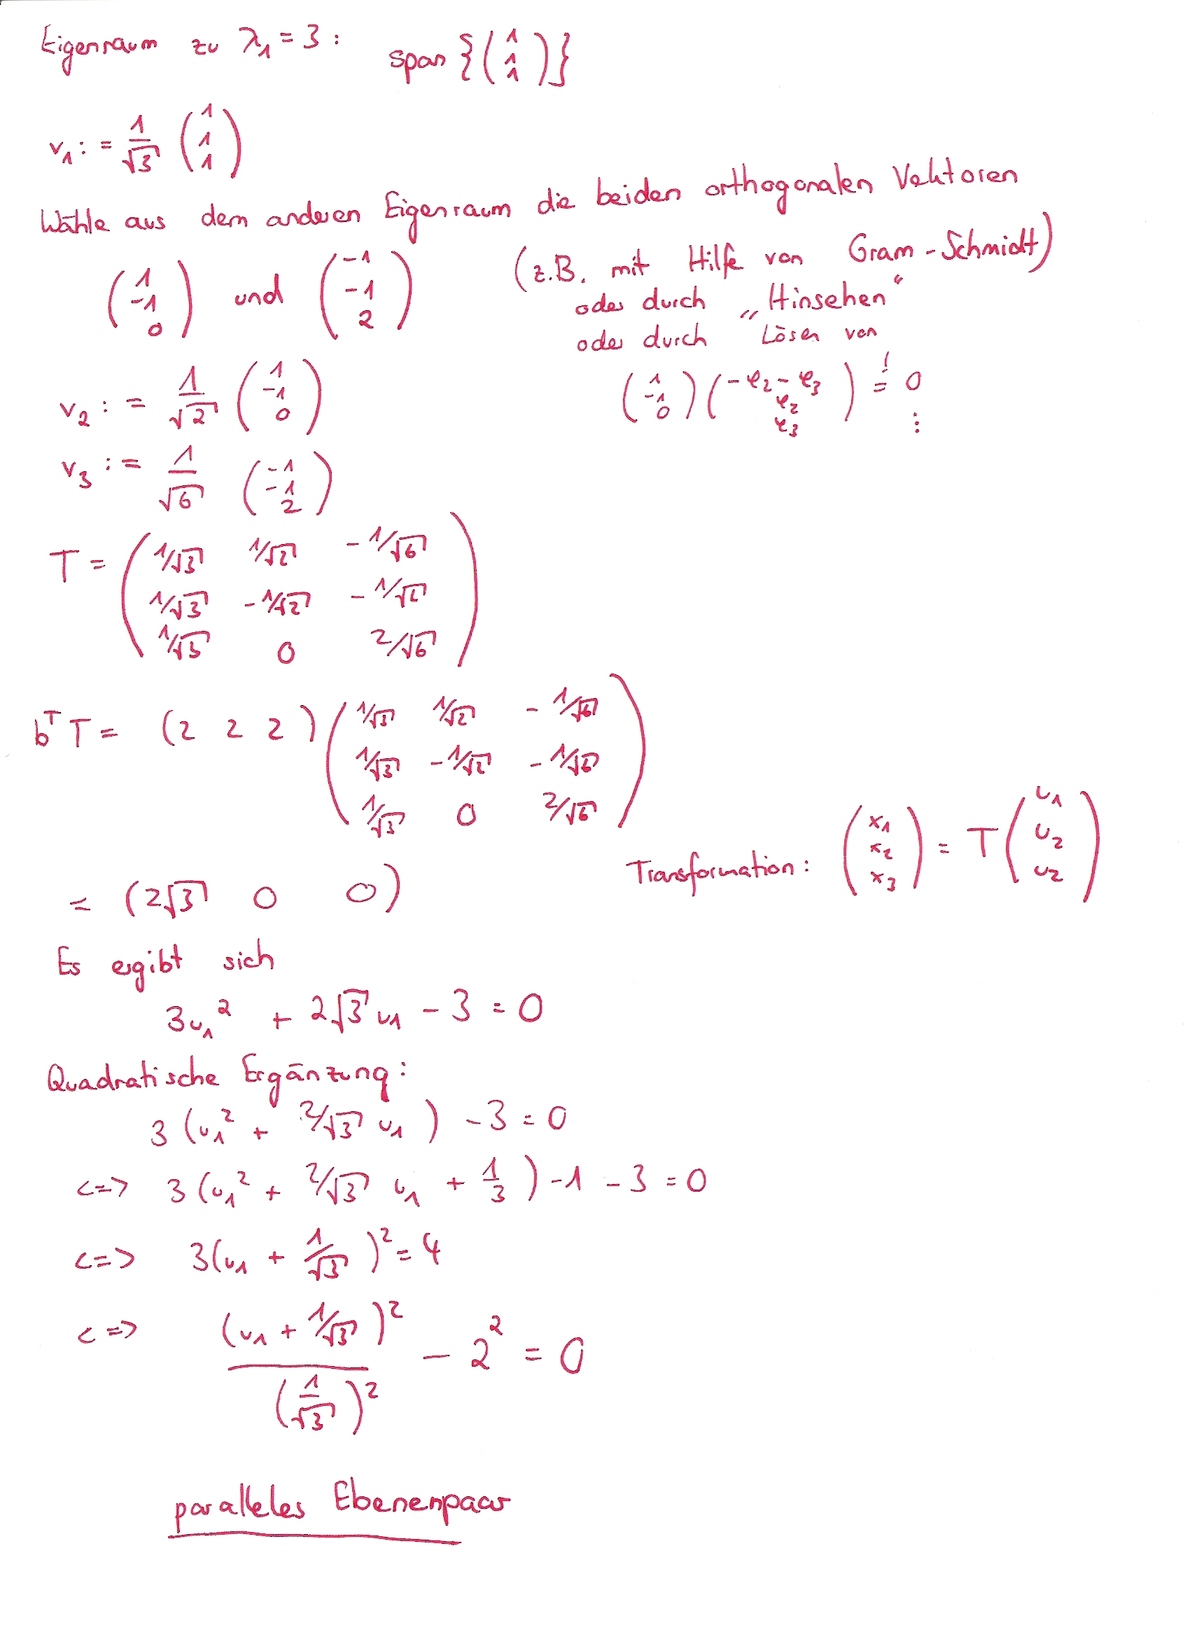 Eigenraum zu λ₁ = 3 : span {(1 1 1)}
v₁ := 1/√3 (1 1 1)
Wähle aus dem anderen Eigenraum die beiden orthogonalen Vektoren
(1 -1 0) und (-1 -1 2) (z.B. mit Hilfe von Gram-Schmidt)
oder durch „Hinsehen“
oder durch Lösen von
v₂ := 1/√2 (1 -1 0) (1 -1 0) (-φ₂-φ₃ φ₂ φ₃) != 0
⋮
v₃ := 1/√6 (-1 -1 2)
T = ( 1/√3 1/√2 -1/√6
1/√3 -1/√2 -1/√2
1/√3 0 2/√6 )
bᵀT = (2 2 2) ( 1/√3 1/√2 -1/√6
1/√3 -1/√2 -1/√6
1/√3 0 2/√6 )
= (2√3 0 0) Transformation: (x₁ x₂ x₃) = T (u₁ u₂ u₂)
Es ergibt sich
3u₁² + 2√3 u₁ - 3 = 0
Quadratische Ergänzung:
3 (u₁² + 2/√3 u₁ ) - 3 = 0
<=> 3 (u₁² + 2/√3 u₁ + 1/3 ) - 1 - 3 = 0
<=> 3(u₁ + 1/√3 )² = 4
<=> (u₁ + 1/√3 )² / (1/√3)² - 2² = 0
paralleles Ebenenpaar